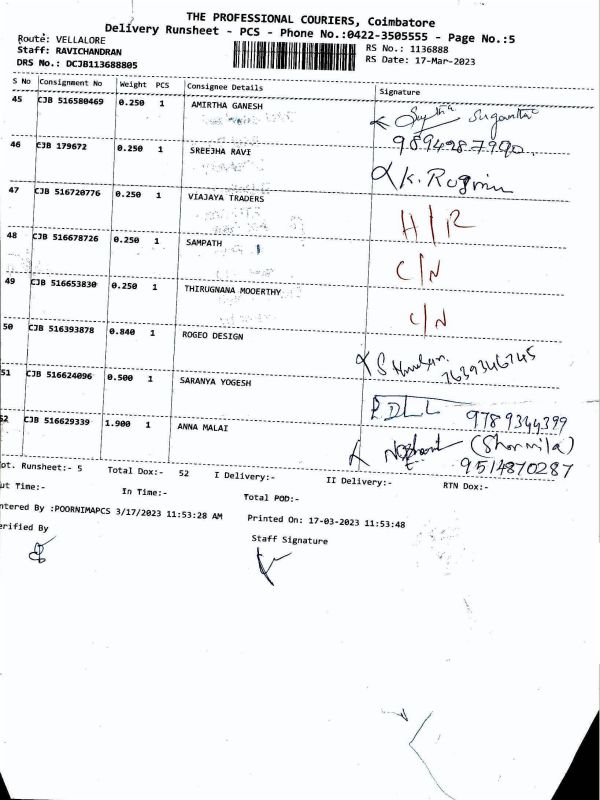 THE PROFESSIONAL COURIERS, Coimbatore
Delivery Runsheet - PCS - Phone No.:0422-3505555 - Page No.:5
Route: VELLALORE
RS No.: 1136888
Staff: RAVICHANDRAN
RS Date: 17-Mar-2023
DRS No.: DCJB113688805
S No Consignment No Weight PCS Consignee Details Signature
45 CJB 516580469 0.250 1 AMIRTHA GANESH
9894287990
46 CJB 179672 0.250 1 SREEJHA RAVI K.
47 CJB 516720776 0.250 1 VIAJAYA TRADERS H/R
48 CJB 516678726 0.250 1 SAMPATH C/N
49 CJB 516653830 0.250 1 THIRUGNANA MOOERTHY C/N
50 CJB 516393878 0.840 1 ROGEO DESIGN S
7639346745
51 CJB 516624096 0.500 1 SARANYA YOGESH
9789344399
52 CJB 516629339 1.900 1 ANNA MALAI (Sharmila)
9514870287
ot. Runsheet:- 5 Total Dox:- 52 I Delivery:- II Delivery:- RTN Dox:-
ut Time:- In Time:- Total POD:-
ntered By :POORNIMAPCS 3/17/2023 11:53:28 AM Printed On: 17-03-2023 11:53:48
erified By Staff Signature